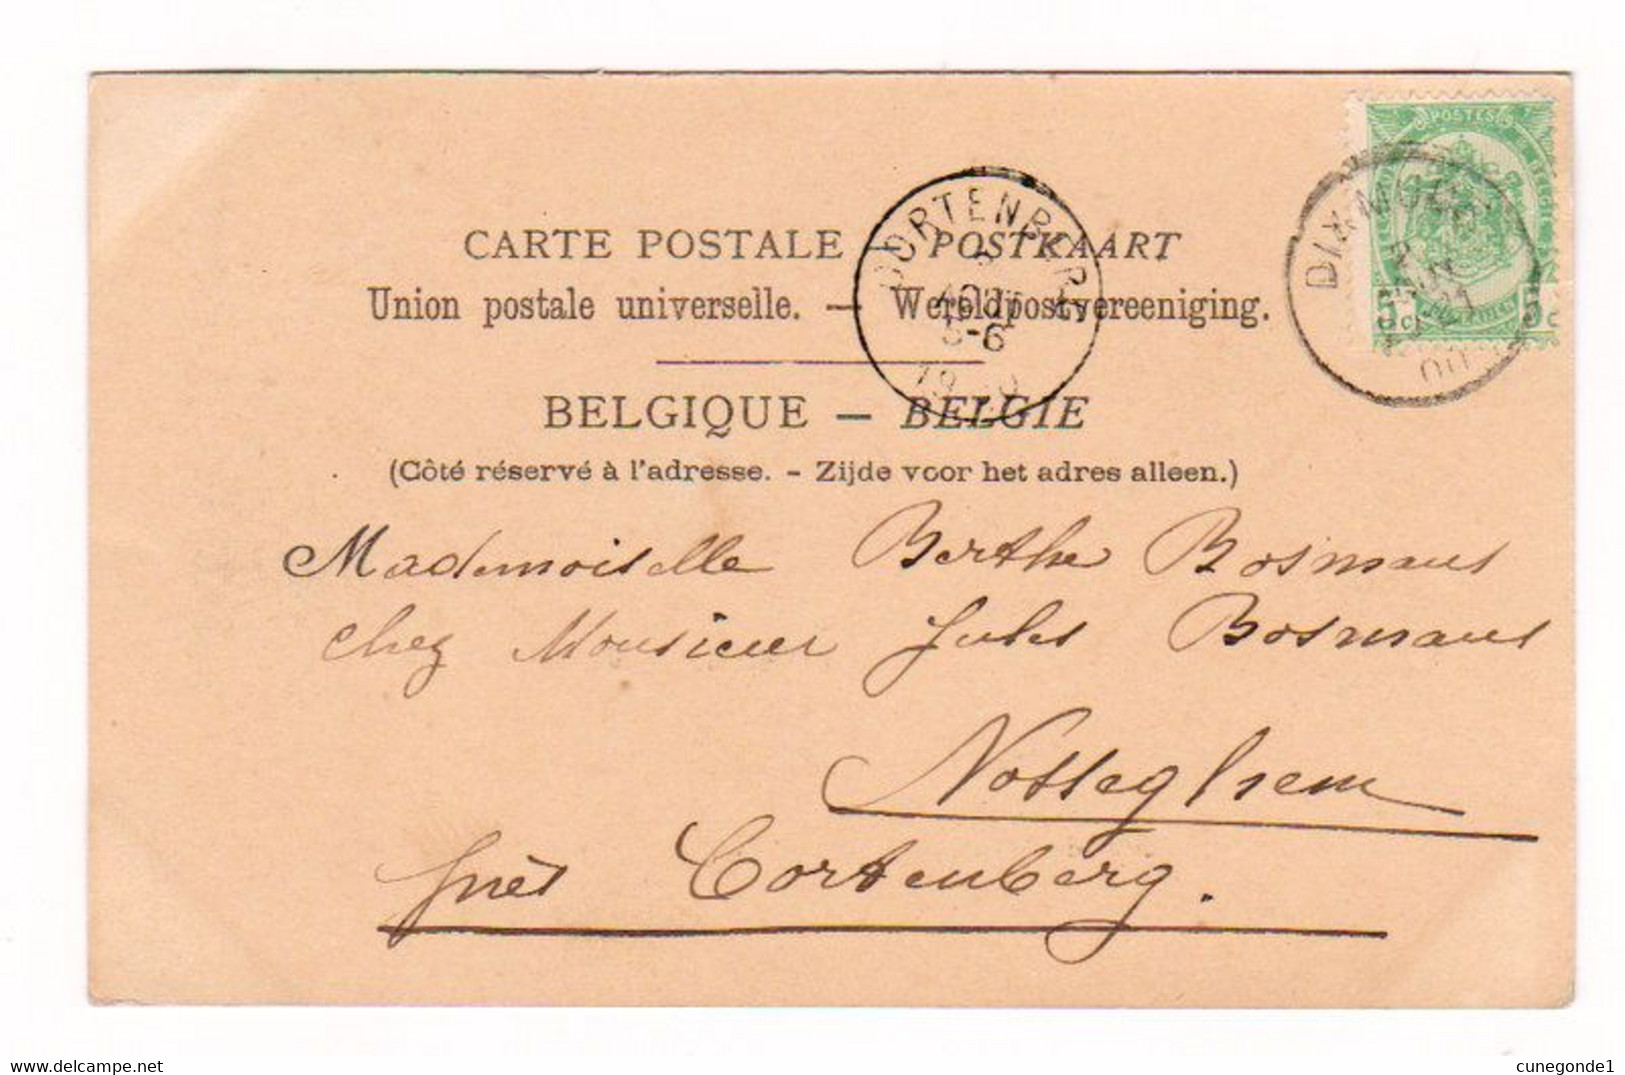 CARTE POSTALE — POSTKAART
Union postale universelle. — Wereldpostvereeniging.
BELGIQUE — BELGIE
(Côté réservé à l'adresse. - Zijde voor het adres alleen.)
POSTES
5c 5c
DIXMUDE
CORTENBERG
AOUT
5-6
Mademoiselle Berthe Bosmans
chez Monsieur Jules Bosmans
Nosseghem
près Cortenberg.
delcampe.net
cunegonde1